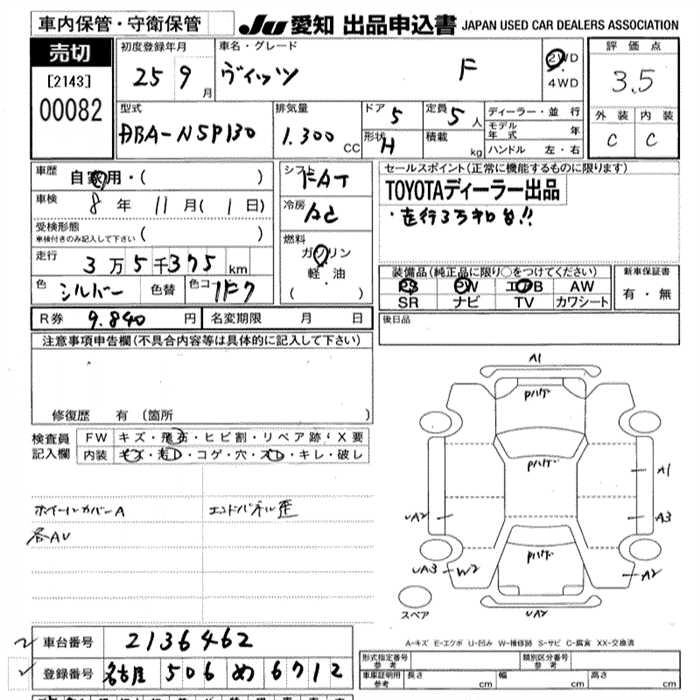 車内保管・守衛保管 JU 愛知 出品申込書 JAPAN USED CAR DEALERS ASSOCIATION
売切
[2143]
00082
初度登録年月 25 9 月
車名・グレード ヴィッツ F
2WD
4WD
評価点
3.5
外装 内装
C C
型式 DBA-NSP130
排気量 1.300 CC
ドア 5
形状 H
定員 5 人
積載 kg
ディーラー・並行
モデル年式 年
ハンドル 左・右
車歴 自家用・( )
車検 8 年 11 月( 1 日)
受検形態
車検付きのみ記入して下さい ( )
走行 3 万 5 千 375 km
色 シルバー 色替 色コード 1F7
シフト FAT
冷房 AC
燃料 ガソリン
軽・油
( )
セールスポイント(正常に機能するものに限ります)
TOYOTAディーラー出品
・走行3万キロ台!!
装備品(純正品に限り○をつけてください)
PS PW エアB AW
SR ナビ TV カワシート
新車保証書
有・無
R券 9.840 円 名変期限 月 日
後日品
注意事項申告欄(不具合内容等は具体的に記入して下さい)
修復歴 有 (箇所 )
検査員記入欄
FW キズ・飛石・ヒビ割・リペア跡・X要
内装 キズ・汚レ・コゲ・穴・スレ・キレ・破レ
ホイールカバーA エンドパネル歪
各AU
A1
Pハゲ
Pハゲ
A1
UA2 A3
Pハゲ
UA3 W2 A2
UA2
スペア
A-キズ E-エクボ U-凹み W-補修跡 S-サビ C-腐食 XX-交換済
車台番号 2136462
登録番号 名古屋 506 め 6712
形式指定番号 参考 類別区分番号 参考
車庫証明用 参考 長さ cm 幅 cm 高さ cm